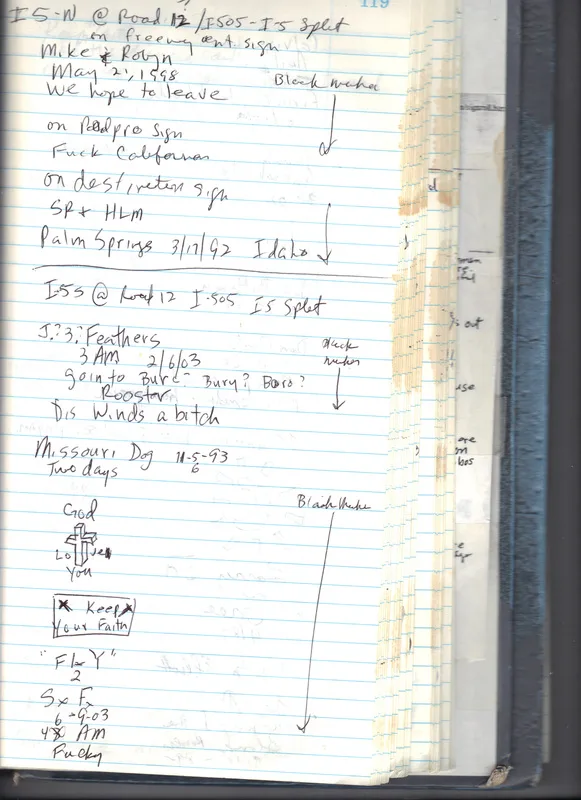 119
I5-N @ Road 12 / I505 - I-5 Split
on freeway ent sign
Mike & Robyn
May 21, 1998
We hope to leave
Black marker
on Roadpro sign
Fuck Californian
on destination sign
SR + HLM
Palm Springs 3/17/92 Idaho
I-5S @ Road 12 I-505 I5 Split
J.?3? Feathers
3 AM 2/6/03
goin to Burc - Bury? Boro?
Rooster
Dis Winds a bitch
black marker
Missouri Dog 11-5-93
6
Two days
Black Marker
God
Lo ves
You
x Keep x
Your Faith
"FLY"
2
Sx F
6-9-03
AM
Fucky